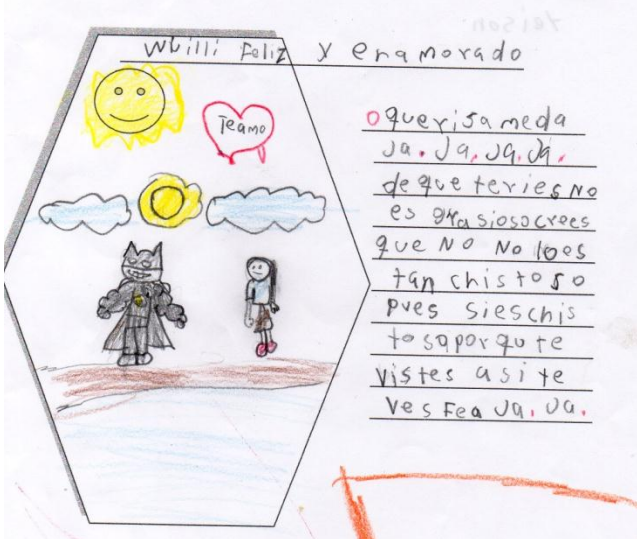 Wuilli Feliz y enamorado
Teamo
o querisa meda
Ja. Ja, Ja, Ja.
de que teries No
es grasioso crees
que No No loes
tan chistoso
pues sieschis
tosaporqu te
vistes asi te
ves Fea Ja. Ja.